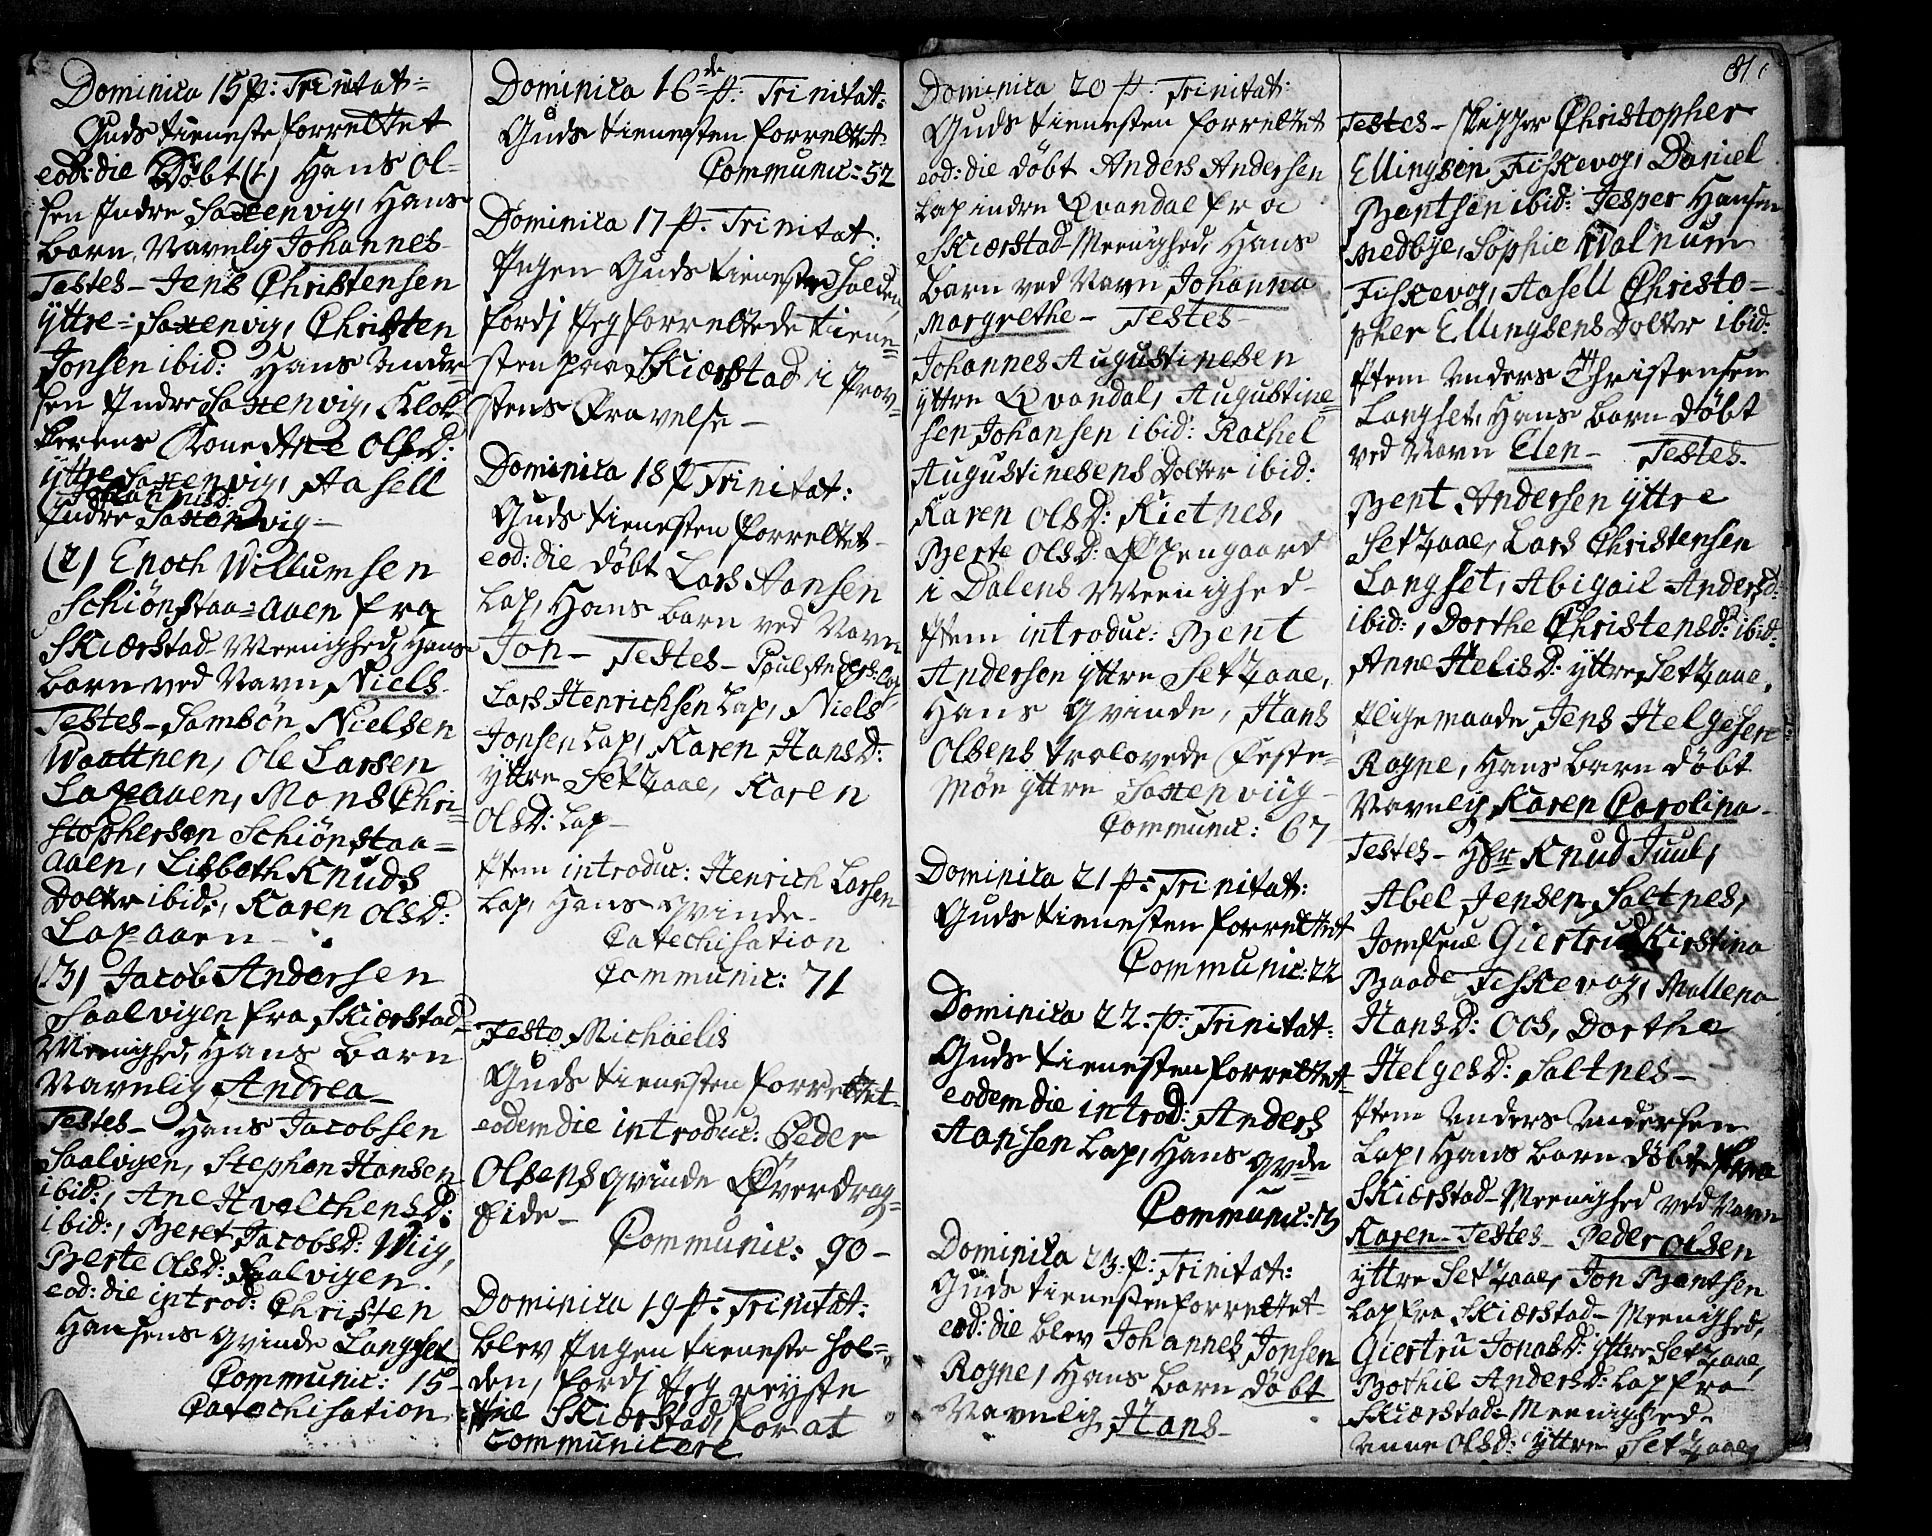 Dominica 15 p: Trinitat=
Guds tieneste forrettet
eod: die Døbt (1) Hans Ol-
sen Indre Saxenvig, Hans
barn, Navnlig Johannes
Testes - Jens Christensen
Yttre = Saxenvig, Christen
Jonsen ibid: Hans Ander-
sen Indre Saxenvig, Klok-
kerens Kone Ane Olsd:
yttre Saxenvig, Aasell
Johannisd:
Indre Saxenvig -
(2) Enoch Willumsen
Schiønstaa-aaen fra
Skierstad Meenighed, Hans
barn ved Navn Niels.
Testes - Sambøn Nielsen
Waattnen, Ole Larsen
Laxaaen, Mons Chri-
stophersen Schiønstaa-
aaen, Lisbeth Knuds
Dotter ibid:, Karen Olsd:
Laxaaen -
(3) Jacob Andersen
Saalvigen fra Skierstad-
Meenighed, Hans barn
Navnlig Andrea -
Testes - Hans Jacobsen
Saalvigen, Stephen Hansen
ibid:, Ane Hvelchensd:
ibid:, Beret Jacobsd: Wiig,
Berte Olsd: Saalvigen.
eod: die introd: Christen
Hansens qvinde Langset
Communic: 15-
Catechisation
Dominica 16de p: Trinitat:
Guds tienesten forrettet
Communic: 52
Dominica 17 p. Trinitat:
Ingen Guds tieneste holden,
fordj Jeg forrettede tiene-
sten paa Skierstad i Prov-
stens Fravelse -
Dominica 18 p Trinitat:
Guds tienesten forrettet
eod: die døbt Lars Hansen
Lap, Hans barn ved Navn
Jon - Testes - Poul Anders: Lap,
Lars Henrichsen Lap, Niels
Jonsen Lap, Karen Hansd:
yttre Setzaae, Karen
Olsd: Lap -
Item introduc: Henrich Larsen
Lap, Hans qvinde.
Catechisation
Communic: 71
Festo Michaelis
Guds tienesten forrettet-
eodem die introduc: Peder
Olsens qvinde Øverdrag-
Eide -
Communic: 90 -
Dominica 19 p: Trinitat:
blev Ingen tieneste hol-
den, fordj Jeg reyste
til Skierstad, for at
communicere
Dominica 20 p: Trinitat:
Guds tienesten forrettet
eod: die døbt Anders Andersen
Lap indre Qvandal fra
Skierstad Meenighed, Hans
barn ved Navn Johanna
Margrethe - Testes -
Johannes Augustinesen
yttre Qvandal, Augustine-
sen Johansen ibid: Rachel
Augustinesens Dotter ibid:
Karen Olsd: Kietnes,
Berte Olsd: Øxengaard
i Dalens Meenighed -
Item introduc: Bent
Andersen yttre Setzaae,
Hans qvinde, Hans
Olsens trolovede Feste-
Møe yttre Saxenviig -
Communic: 67
Dominica 21 p: Trinitat:
Guds tienesten forrettet
Communic: 22
Dominica 22. p: Trinitat:
Guds tienesten forrettet
eodem die introd: Anders
Hansen Lap, Hans qvde
Communic: 13
Dominica 23: p: Trinitat:
Guds tienesten forrettet
eod: die blev Johannes Jonsen
Rogne, Hans barn døbt
Navnlig Hans -
81
Testes - Skipper Christopher
Ellingsen Fiskevog, Daniel
Bentsen ibid: Jesper Hansen
Nedbye, Sophie Walnum
Fiskevog, Aasell Christo-
pher Ellingsens Dotter ibid:
Item Anders Christensen
Langset, Hans barn døbt
ved Navn Elen - Testes.
Bent Andersen yttre
Setzaae, Lars Christensen
Langset, Abigail Andersd:
ibid:, Dorthe Christensd: ibid:
Anne Helisd: yttre Setzaae,
Iligemaade Jens Helgesen
Rogne, Hans barn døbt
Navnlig Karen Carolina -
Testes - Hbr Knud Juul,
Abel Jensen Saltnes,
Jomfrue Giertrud Kirstina
Baade Fiskevog, Mallena
Hansd: Oos, Dorthe
Helgesd: Saltnes -
Item Anders Andersen
Lap, Hans barn døbt fra
Skierstad Meenighed ved Navn
Karen - Testes - Peder Olsen
yttre Setzaae, Jon Bentsen
Lap fra Skierstad - Meenighed,
Giertru Jonasd: yttre Setzaae,
Bothil Andersd: Lap fra
Skierstad Meenighed.
Anne Olsd: yttre Setzaae,